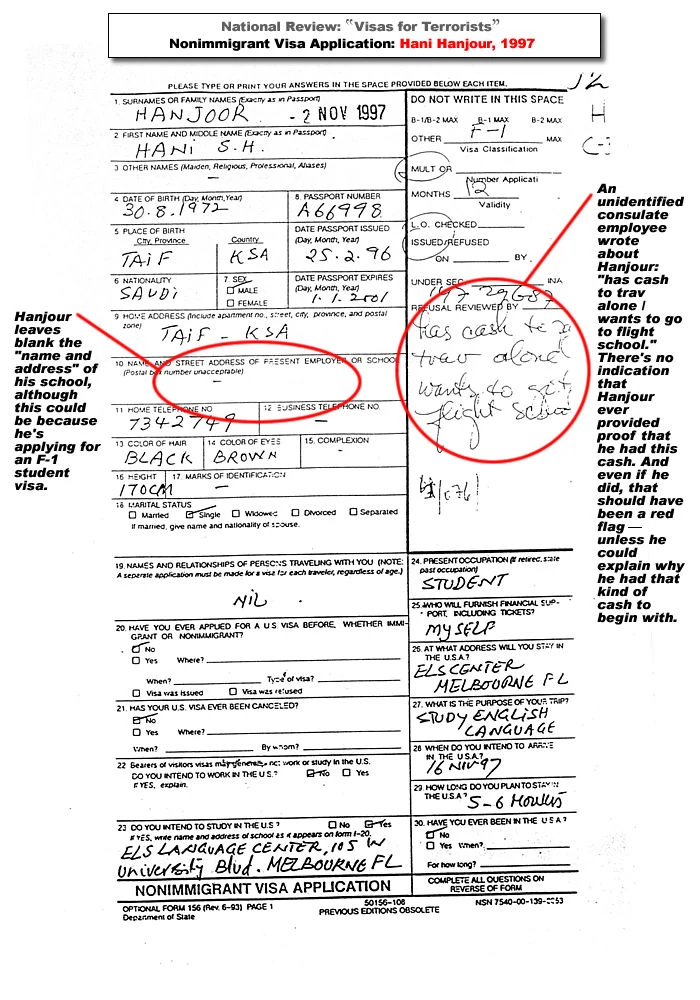 National Review: "Visas for Terrorists"
Nonimmigrant Visa Application: Hani Hanjour, 1997
PLEASE TYPE OR PRINT YOUR ANSWERS IN THE SPACE PROVIDED BELOW EACH ITEM.
1. SURNAMES OR FAMILY NAMES (Exactly as in Passport)
HANJOOR - 2 NOV 1997
2. FIRST NAME AND MIDDLE NAME (Exactly as in Passport)
HANI S.H.
3. OTHER NAMES (Maiden, Religious, Professional, Aliases)
—
4. DATE OF BIRTH (Day, Month, Year)
30.8.1972
8. PASSPORT NUMBER
A66998
5. PLACE OF BIRTH
City, Province Country
TAIF KSA
DATE PASSPORT ISSUED
(Day, Month, Year)
25.2.96
6. NATIONALITY
SAUDI
7. SEX
MALE
FEMALE
DATE PASSPORT EXPIRES
(Day, Month, Year)
1.1.2001
9. HOME ADDRESS (Include apartment no., street, city, province, and postal
zone)
TAIF - KSA
10. NAME AND STREET ADDRESS OF PRESENT EMPLOYER OR SCHOOL
(Postal box number unacceptable)
—
11. HOME TELEPHONE NO.
7342749
12. BUSINESS TELEPHONE NO.
—
13. COLOR OF HAIR
BLACK
14. COLOR OF EYES
BROWN
15. COMPLEXION
-
16. HEIGHT
170CM
17. MARKS OF IDENTIFICATION
—
18. MARITAL STATUS
Married Single Widowed Divorced Separated
If married, give name and nationality of spouse.
DO NOT WRITE IN THIS SPACE
B-1/B-2 MAX B-1 MAX B-2 MAX
OTHER F-1 MAX
Visa Classification
MULT OR
Number Applicati
MONTHS 12
Validity
L.O. CHECKED
ISSUED/REFUSED
ON BY
UNDER SEC. INA
REFUSAL REVIEWED BY
has cash to
trav alone
wants to go
flight
H
An
unidentified
consulate
employee
wrote
about
Hanjour:
"has cash
to trav
alone I
wants to go
to flight
school."
There's no
indication
that
Hanjour
ever
provided
proof that
he had this
cash. And
even if he
did, that
should have
been a red
flag —
unless he
could
explain why
he had that
kind of
cash to
begin with.
Hanjour
leaves
blank the
"name and
address" of
his school,
although
this could
be because
he's
applying for
an F-1
student
visa.
19. NAMES AND RELATIONSHIPS OF PERSONS TRAVELING WITH YOU (NOTE:
A separate application must be made for a visa for each traveler, regardless of age.)
NIL.
20. HAVE YOU EVER APPLIED FOR A U.S. VISA BEFORE, WHETHER IMMI-
GRANT OR NONIMMIGRANT?
No
Yes Where?
When? Type of visa?
Visa was issued Visa was refused
21. HAS YOUR U.S. VISA EVER BEEN CANCELED?
No
Yes Where?
When? By whom?
22 Bearers of visitors visas may generally not work or study in the U.S.
DO YOU INTEND TO WORK IN THE U.S.? No Yes
If YES, explain.
23 DO YOU INTEND TO STUDY IN THE U.S.? No Yes
If YES, write name and address of school as it appears on form I-20.
ELS LANGUAGE CENTER, 105 W
University Blvd. MELBOURNE FL
24. PRESENT OCCUPATION (If retired, state
past occupation)
STUDENT
25. WHO WILL FURNISH FINANCIAL SUP-
PORT, INCLUDING TICKETS?
MYSELF
26. AT WHAT ADDRESS WILL YOU STAY IN
THE U.S.A.?
ELS CENTER
MELBOURNE FL
27. WHAT IS THE PURPOSE OF YOUR TRIP?
STUDY ENGLISH
LANGUAGE
28 WHEN DO YOU INTEND TO ARRIVE
IN THE U.S.A.?
16 NIV 97
29. HOW LONG DO YOU PLAN TO STAY IN
THE U.S.A.?
5-6
30. HAVE YOU EVER BEEN IN THE U.S.A.?
No
Yes When?
For how long?
NONIMMIGRANT VISA APPLICATION
COMPLETE ALL QUESTIONS ON
REVERSE OF FORM
OPTIONAL FORM 156 (Rev. 6-93) PAGE 1
Department of State
50156-106
PREVIOUS EDITIONS OBSOLETE
NSN 7540-00-139-0053